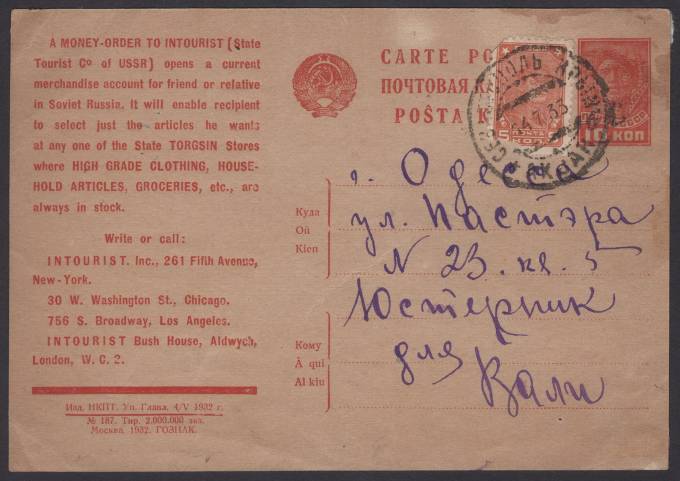 A MONEY-ORDER TO INTOURIST (State
Tourist Co of USSR) opens a current
merchandise account for friend or relative
in Soviet Russia. It will enable recipient
to select just the articles he wants
at any one of the State TORGSIN Stores
where HIGH GRADE CLOTHING, HOUSE-
HOLD ARTICLES, GROCERIES, etc., are
always in stock.
Write or call:
INTOURIST. Inc., 261 Fifth Avenue,
New-York.
30 W. Washington St., Chicago.
756 S. Broadway, Los Angeles.
INTOURIST Bush House, Aldwych,
London, W. C. 2.
Изд. НКПТ. Уп. Главл. 4/V 1932 г.
№ 187. Тир. 2.000.000 экз.
Москва. 1932. ГОЗНАК.
CARTE
ПОЧТОВАЯ
POŜTA
ПОЧТА
КОП
10 КОП
г. Одесса
Куда
Ой
Kien
ул. Пастэра
N 23. кв. 5
Юстерник
Кому
À qui
Al kiu
для
Вали